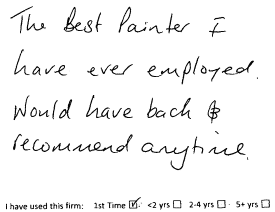 The Best Painter I
have ever employed.
Would have back &
recommend anytime.
I have used this firm: 1st Time ☑ <2 yrs ☐ 2-4 yrs ☐ 5+ yrs ☐